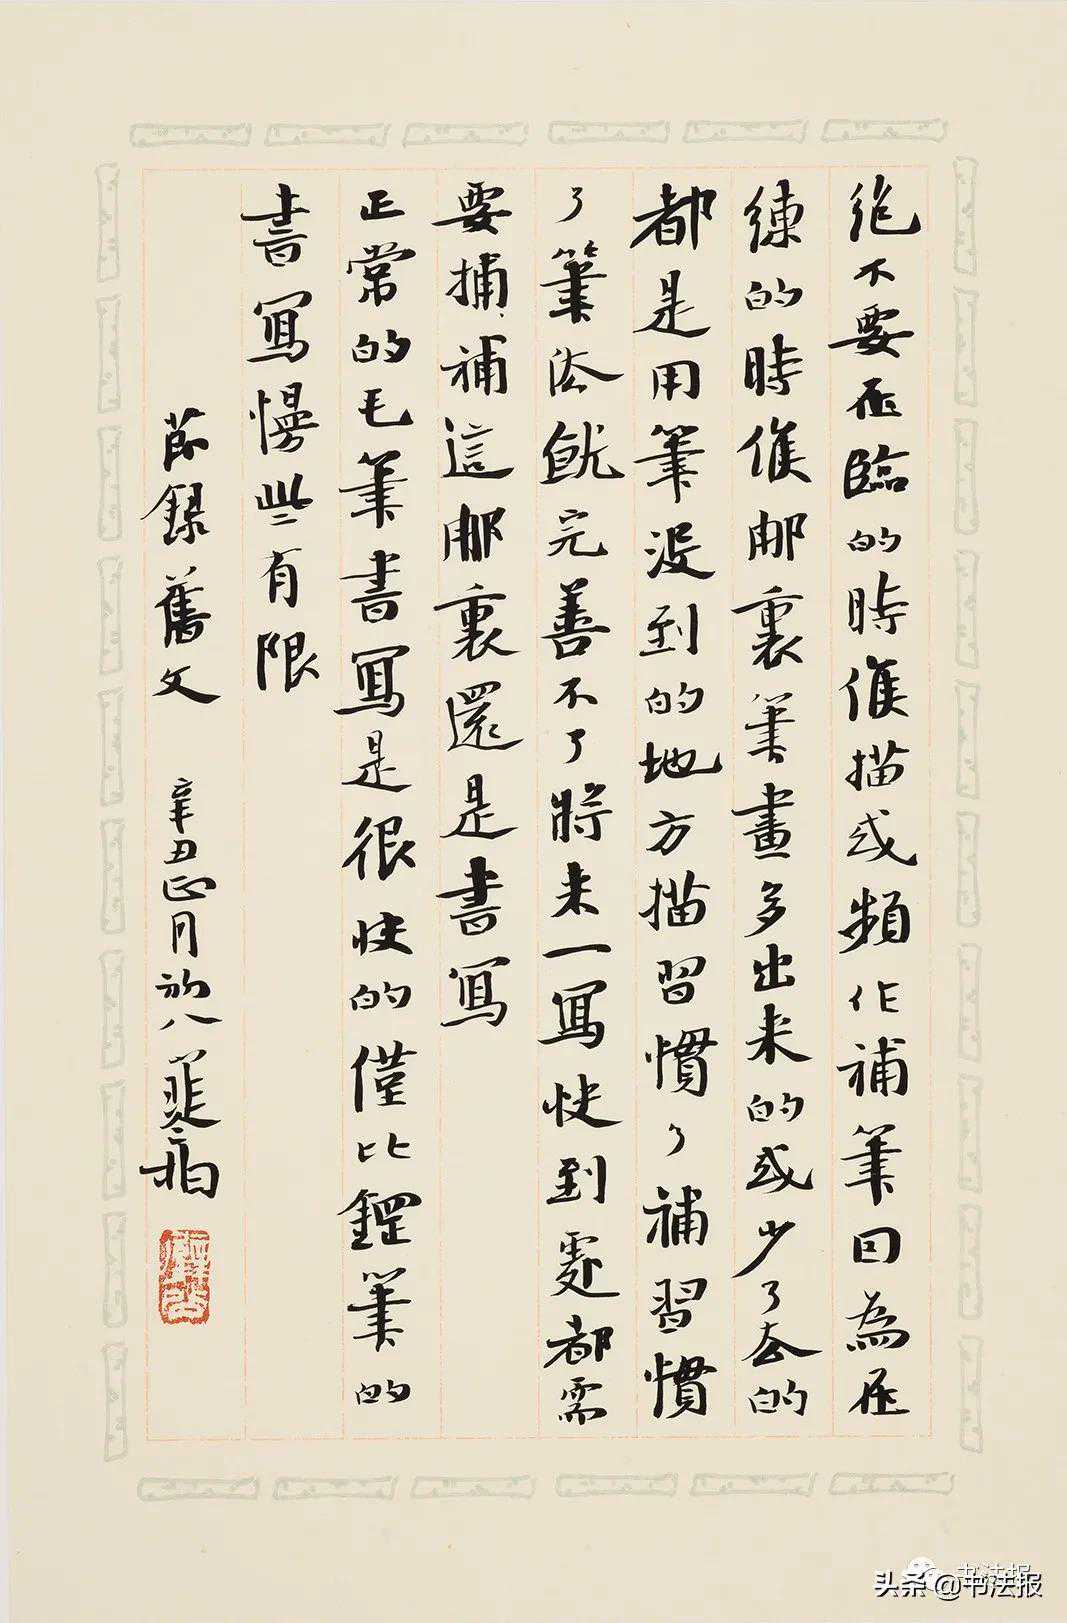 絶不要在臨的時候描或頻作補筆因為在
練的時候那裏筆畫多出來的或少了去的
都是用筆没到的地方描習慣了補習慣
了筆法就完善不了將來一寫快到處都需
要捕補這那裏還是書寫
正常的毛筆書寫是很快的僅比鋼筆的
書寫慢些有限
節録舊文 辛丑正月初八
书法报
头条 @书法报